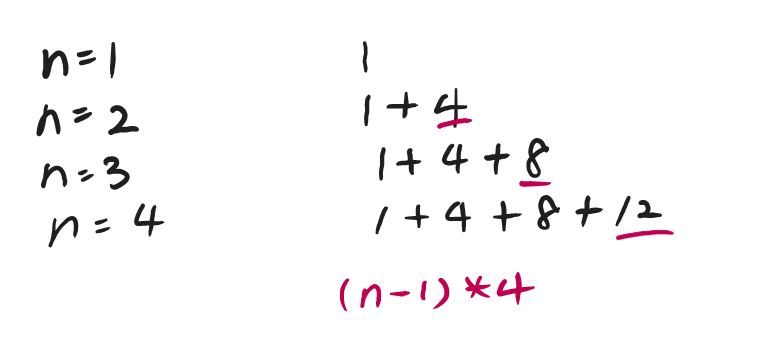 n=1 1
n=2 1+4
n=3 1+4+8
n=4 1+4+8+12
(n-1)*4